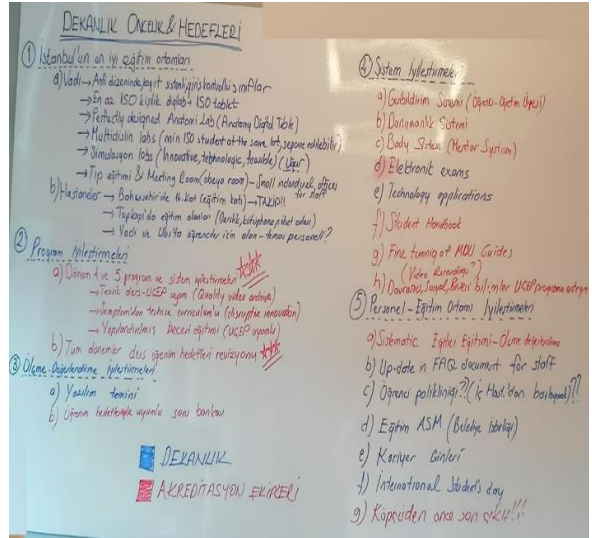 DEKANLIK ÖNCELİK & HEDEFLERİ
① İstanbul'un en iyi eğitim ortamları
a) Vadi → Anfi düzeninde, kayıt sistemli, giriş kontrollü sınıflar
→ En az 150 kişilik diglab + 150 tablet
→ Perfectly designed Anatomi Lab (Anatomy Digital Table)
→ Multidisiplin labs (min 150 student at the same lab, separe edilebilir)
→ Simulasyon labs (Innovative, technologic, feasible) (Uğur)
→ Tıp eğitimi & Meeting Room (obeya room) - Small individual offices for staff
b) Hastaneler → Bahçeşehir'de 7. kat (eğitim katı) → TAKİP!!
→ Topkapı'da eğitim alanları (Derslik, kütüphane, nöbet odası)
→ Vadi ve Ulus'ta öğrenciler için alan - temas personeli?
② Program iyileştirmeleri
a) Dönem 1 ve 5 program ve sistem iyileştirmeleri
→ Teorik ders - UÇEP uyum (Quality video archive)
→ Semptomdan teşhise curriculum'u (disruptive innovation)
→ Yapılandırılmış beceri eğitimi (UÇEP uyumlu)
b) Tüm dönemler ders öğrenim hedefleri revizyonu
③ Ölçme-Değerlendirme iyileştirmeleri
a) Yazılım temini
b) Öğrenim hedefleriyle uyumlu soru bankası
DEKANLIK
AKREDİTASYON EKİPLERİ
④ Sistem İyileştirmeleri
a) Geribildirim Sistemi (Öğrenci-Öğretim Üyesi)
b) Danışmanlık Sistemi
c) Body Sistem (Mentor System)
d) Elektronic exams
e) Technology applications
f) Student Handbook
g) Fine tunning of MDU Guides
(Video Recordings?)
h) Davranış, Sosyal, Beşeri bilimler UÇEP programa entegre
⑤ Personel - Eğitim Ortamı İyileştirmeleri
a) Sistematic Eğitici Eğitimi - Ölçme değerlendirme
b) Up-date in FAQ document for staff
c) Öğrenci polikliniği?! (İç Hast.'dan başlayarak)??
d) Eğitim ASM (Belediye İşbirliği)
e) Kariyer Günleri
f) International Student's day
g) Köprüden önce son çıkış!!!